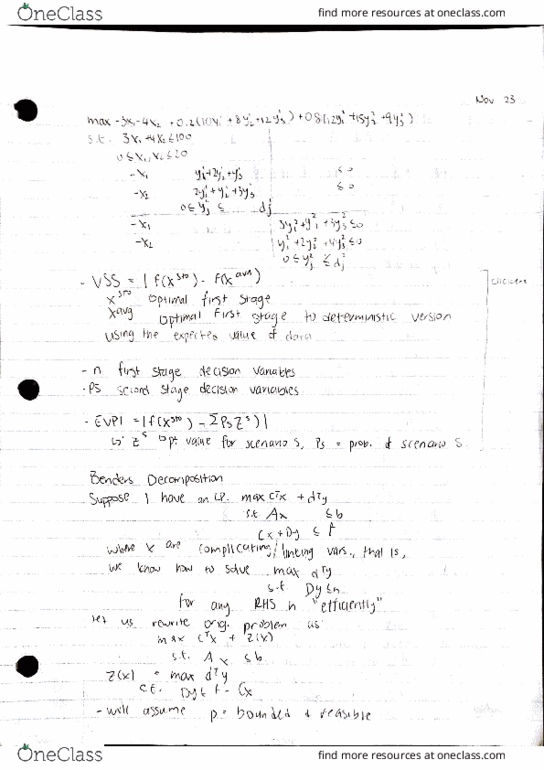 OneClass
find more resources at oneclass.com
Nov 23
max -3x₁-4x₂ + 0.2(10y₁¹ + 8y₂¹ +12y₃¹) + 0.8(12y₁² +15y₂² +9y₃²)
s.t. 3x₁ +4x₂ ≤100
0 ≤ x₁, x₂ ≤20
-x₁ y₁¹+2y₂¹+y₃¹ ≤0
-x₂ 2y₁¹+y₂¹+3y₃¹ ≤0
0 ≤ yⱼ¹ ≤ dⱼ¹
-x₁ 3y₁²+y₂²+3y₃² ≤0
-x₂ y₁²+2y₂²+4y₃² ≤0
0 ≤ yⱼ² ≤ dⱼ²
- VSS = | f(x^sto) - f(x^avg)
x^sto optimal first stage
x^avg optimal first stage to deterministic version
using the expected value of data
- n first stage decision variables
- PS second stage decision variables
- EVPI = |f(x^sto) - ΣPsZ^s)|
Z^s opt value for scenario s, Ps = prob. of scenario s
Benders Decomposition
Suppose I have an LP. max cᵀx + dᵀy
s.t Ax ≤b
Cx+Dy ≤ f
where x are complicating/linking vars., that is,
we know how to solve max dᵀy
s.t Dy≤h
for any RHS h "efficiently"
let us rewrite orig. problem as
max cᵀx + z(x)
s.t. Ax ≤b
z(x) = max dᵀy
s.t. Dy ≤ f - Cx
- will assume p = bounded & feasible
OneClass
find more resources at oneclass.com